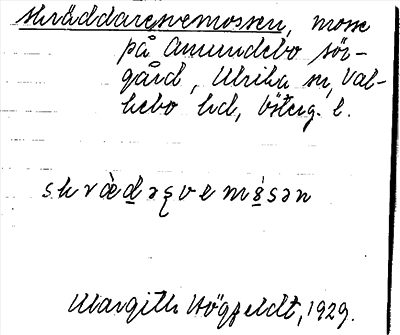 Skräddaresvemossen, mosse
på Amundebo sör-
gård, Ulrika sn, Val-
kebo hd, Österg. l.
Margith Högfeldt, 1929.